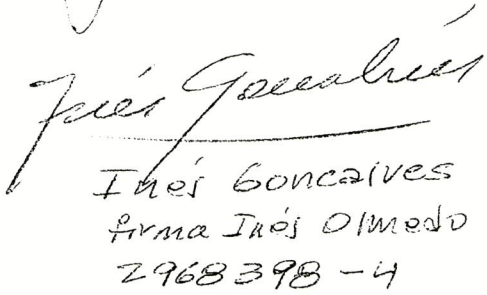 Inés Goncalves
Inés Goncalves
firma Inés Olmedo
2968398-4